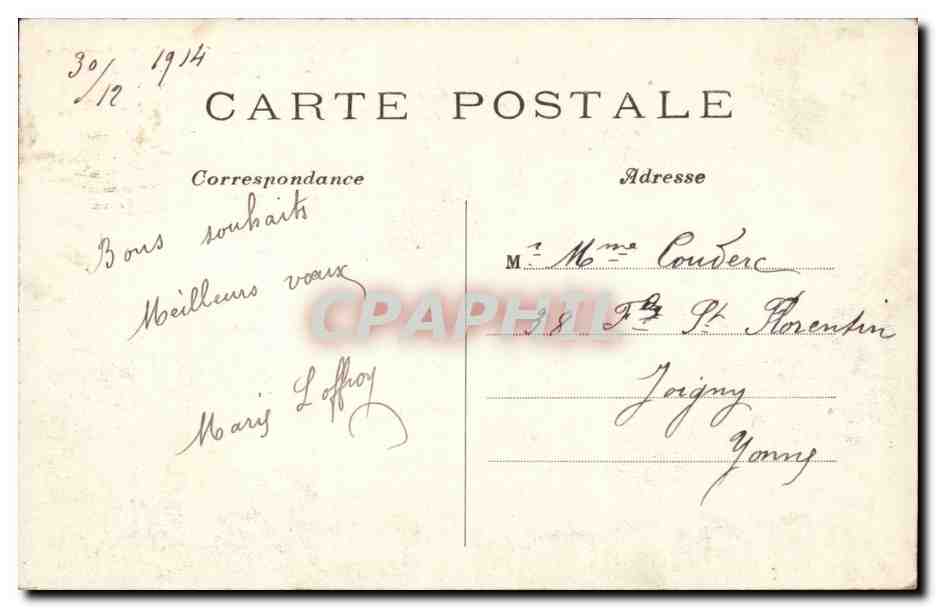 30/12 1914
CARTE POSTALE
Correspondance
Adresse
Bons souhaits
Meilleurs vœux
Marie Loffroy
Mr. Mme Couderc
38 Fbg St Florentin
Joigny
Yonne
CPAPHIL